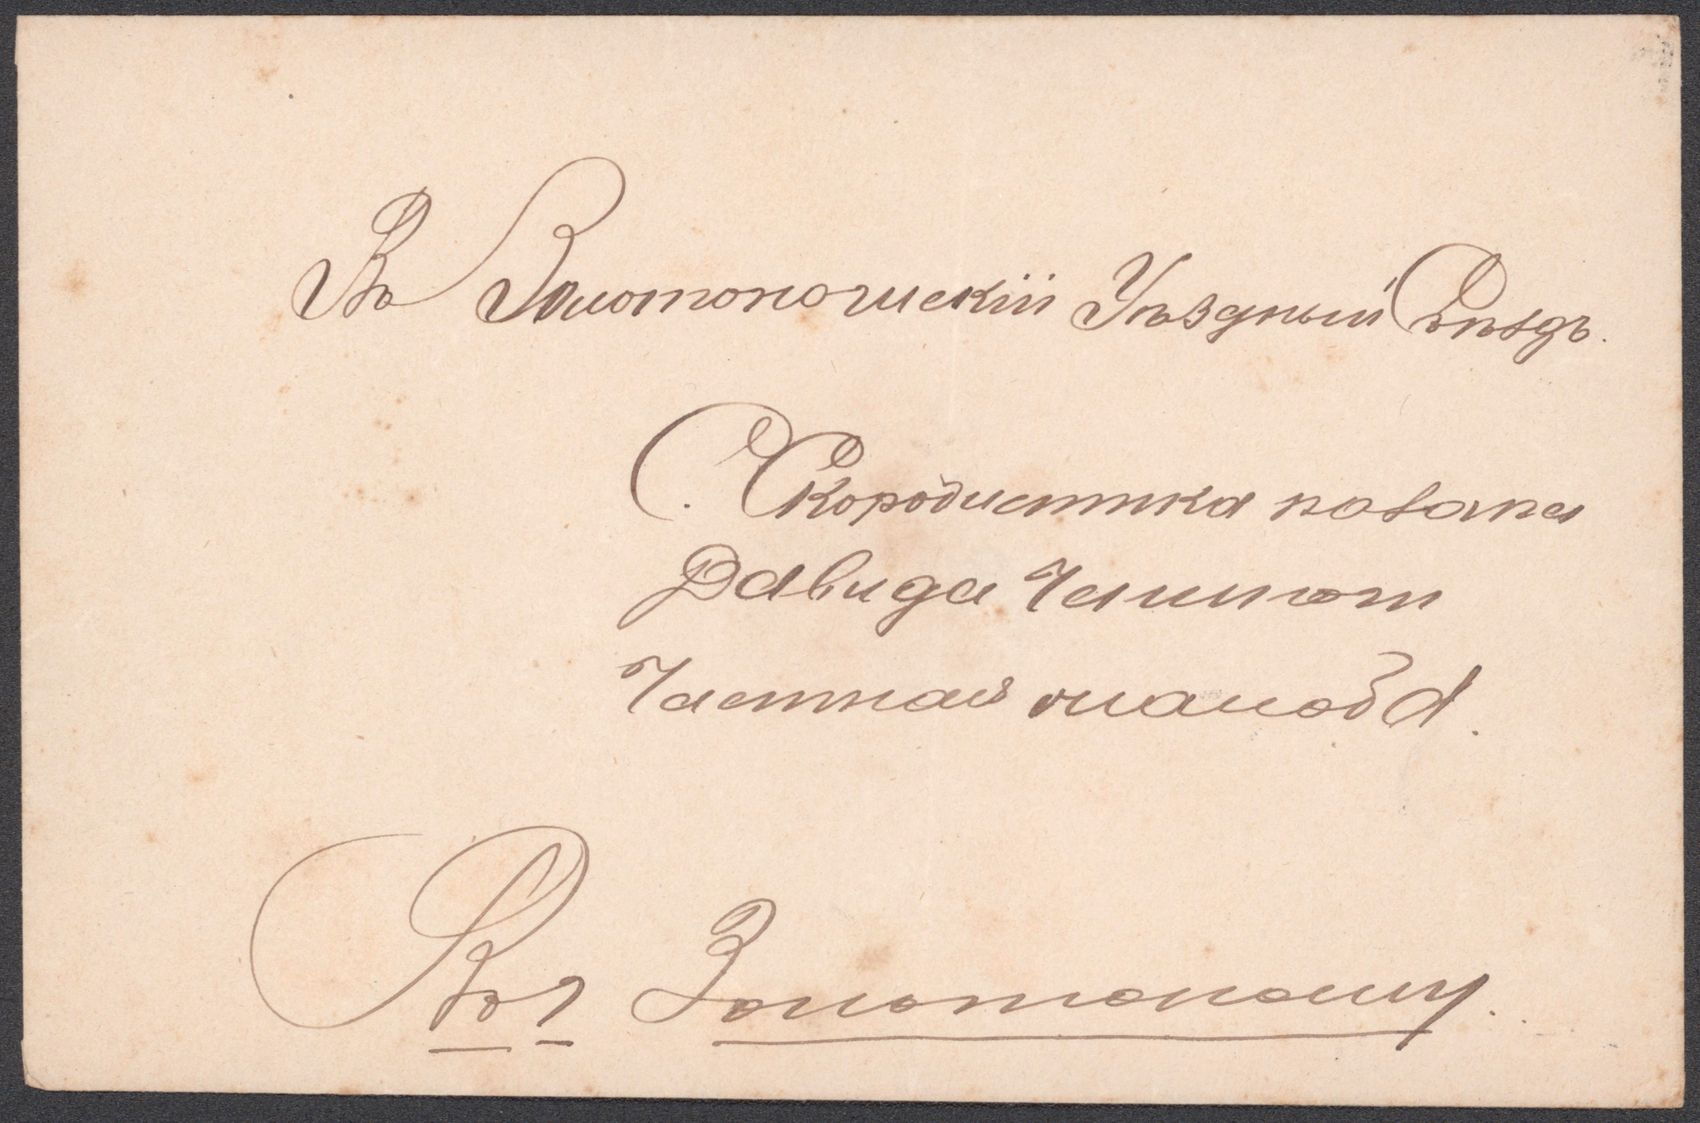 Въ Золотоношскiй Уѣздный Съѣздъ.
С. Скородистика козака
Давида Чалпот
Частная жалоба.
Въ г. Золотоношу.